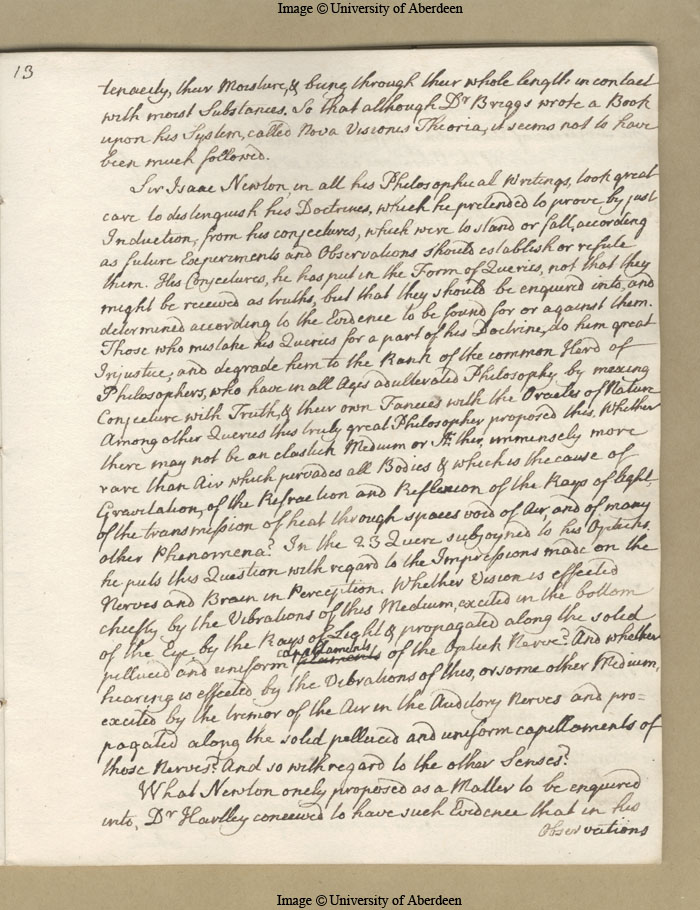 Image © University of Aberdeen
13
tenacity, their Moisture, & being through their whole length in contact
with moist Substances. So that although Dr Briggs wrote a Book
upon his System, called Nova Visionis Theoria, it seems not to have
been much followed.
Sir Isaac Newton, in all his Philosophical Writings, took great
care to distinguish his Doctrines, which he pretended to prove by just
Induction, from his conjectures, which were to stand or fall, according
as future Experiments and Observations should establish or refute
them. His Conjectures, he has put in the Form of Queries, not that they
might be received as truths, but that they should be enquired into, and
determined according to the Evidence to be found for or against them.
Those who mistake his Queries for a part of his Doctrine, do him great
Injustice, and degrade him to the Rank of the common Herd of
Philosophers, who have in all Ages adulterated Philosophy, by mixing
Conjecture with Truth, & their own Fancies with the Oracles of Nature
Among other Queries this truly great Philosopher proposed this. Whether
there may not be an elastick Medium or Æther, immensely more
rare than Air which pervades all Bodies & which is the cause of
Gravitation, of the Refraction and Reflexion of the Rays of light
of the transmission of heat through spaces void of Air, and of many
other Phenomena? In the 23 Quere subjoyned to his Opticks.
he puts this Question with regard to the Impressions made on the
Nerves and Brain in Perception. Whether Vision is effected
chiefly by the Vibrations of this Medium, excited in the bottom
of the Eye by the Rays of Light & propagated along the solid
pellucid and uniform capillaments of the Optick Nerve? And whether
hearing is effected by the Vibrations of this, or some other Medium,
excited by the tremor of the Air in the Auditory Nerves and pro=
pagated along the solid pellucid and uniform capillaments of
those Nerves? And so with regard to the other Senses?
What Newton onely proposed as a Matter to be enquired
into, Dr Hartley conceived to have such Evidence that in his
Observations
Image © University of Aberdeen